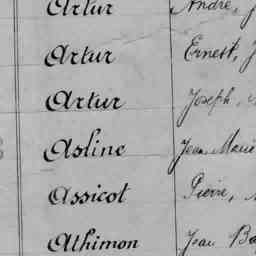 Artur André,
Artur Ernest, J
Artur Joseph,
Asline Jean Marie
Assicot Pierre,
Athimon Jean Ba